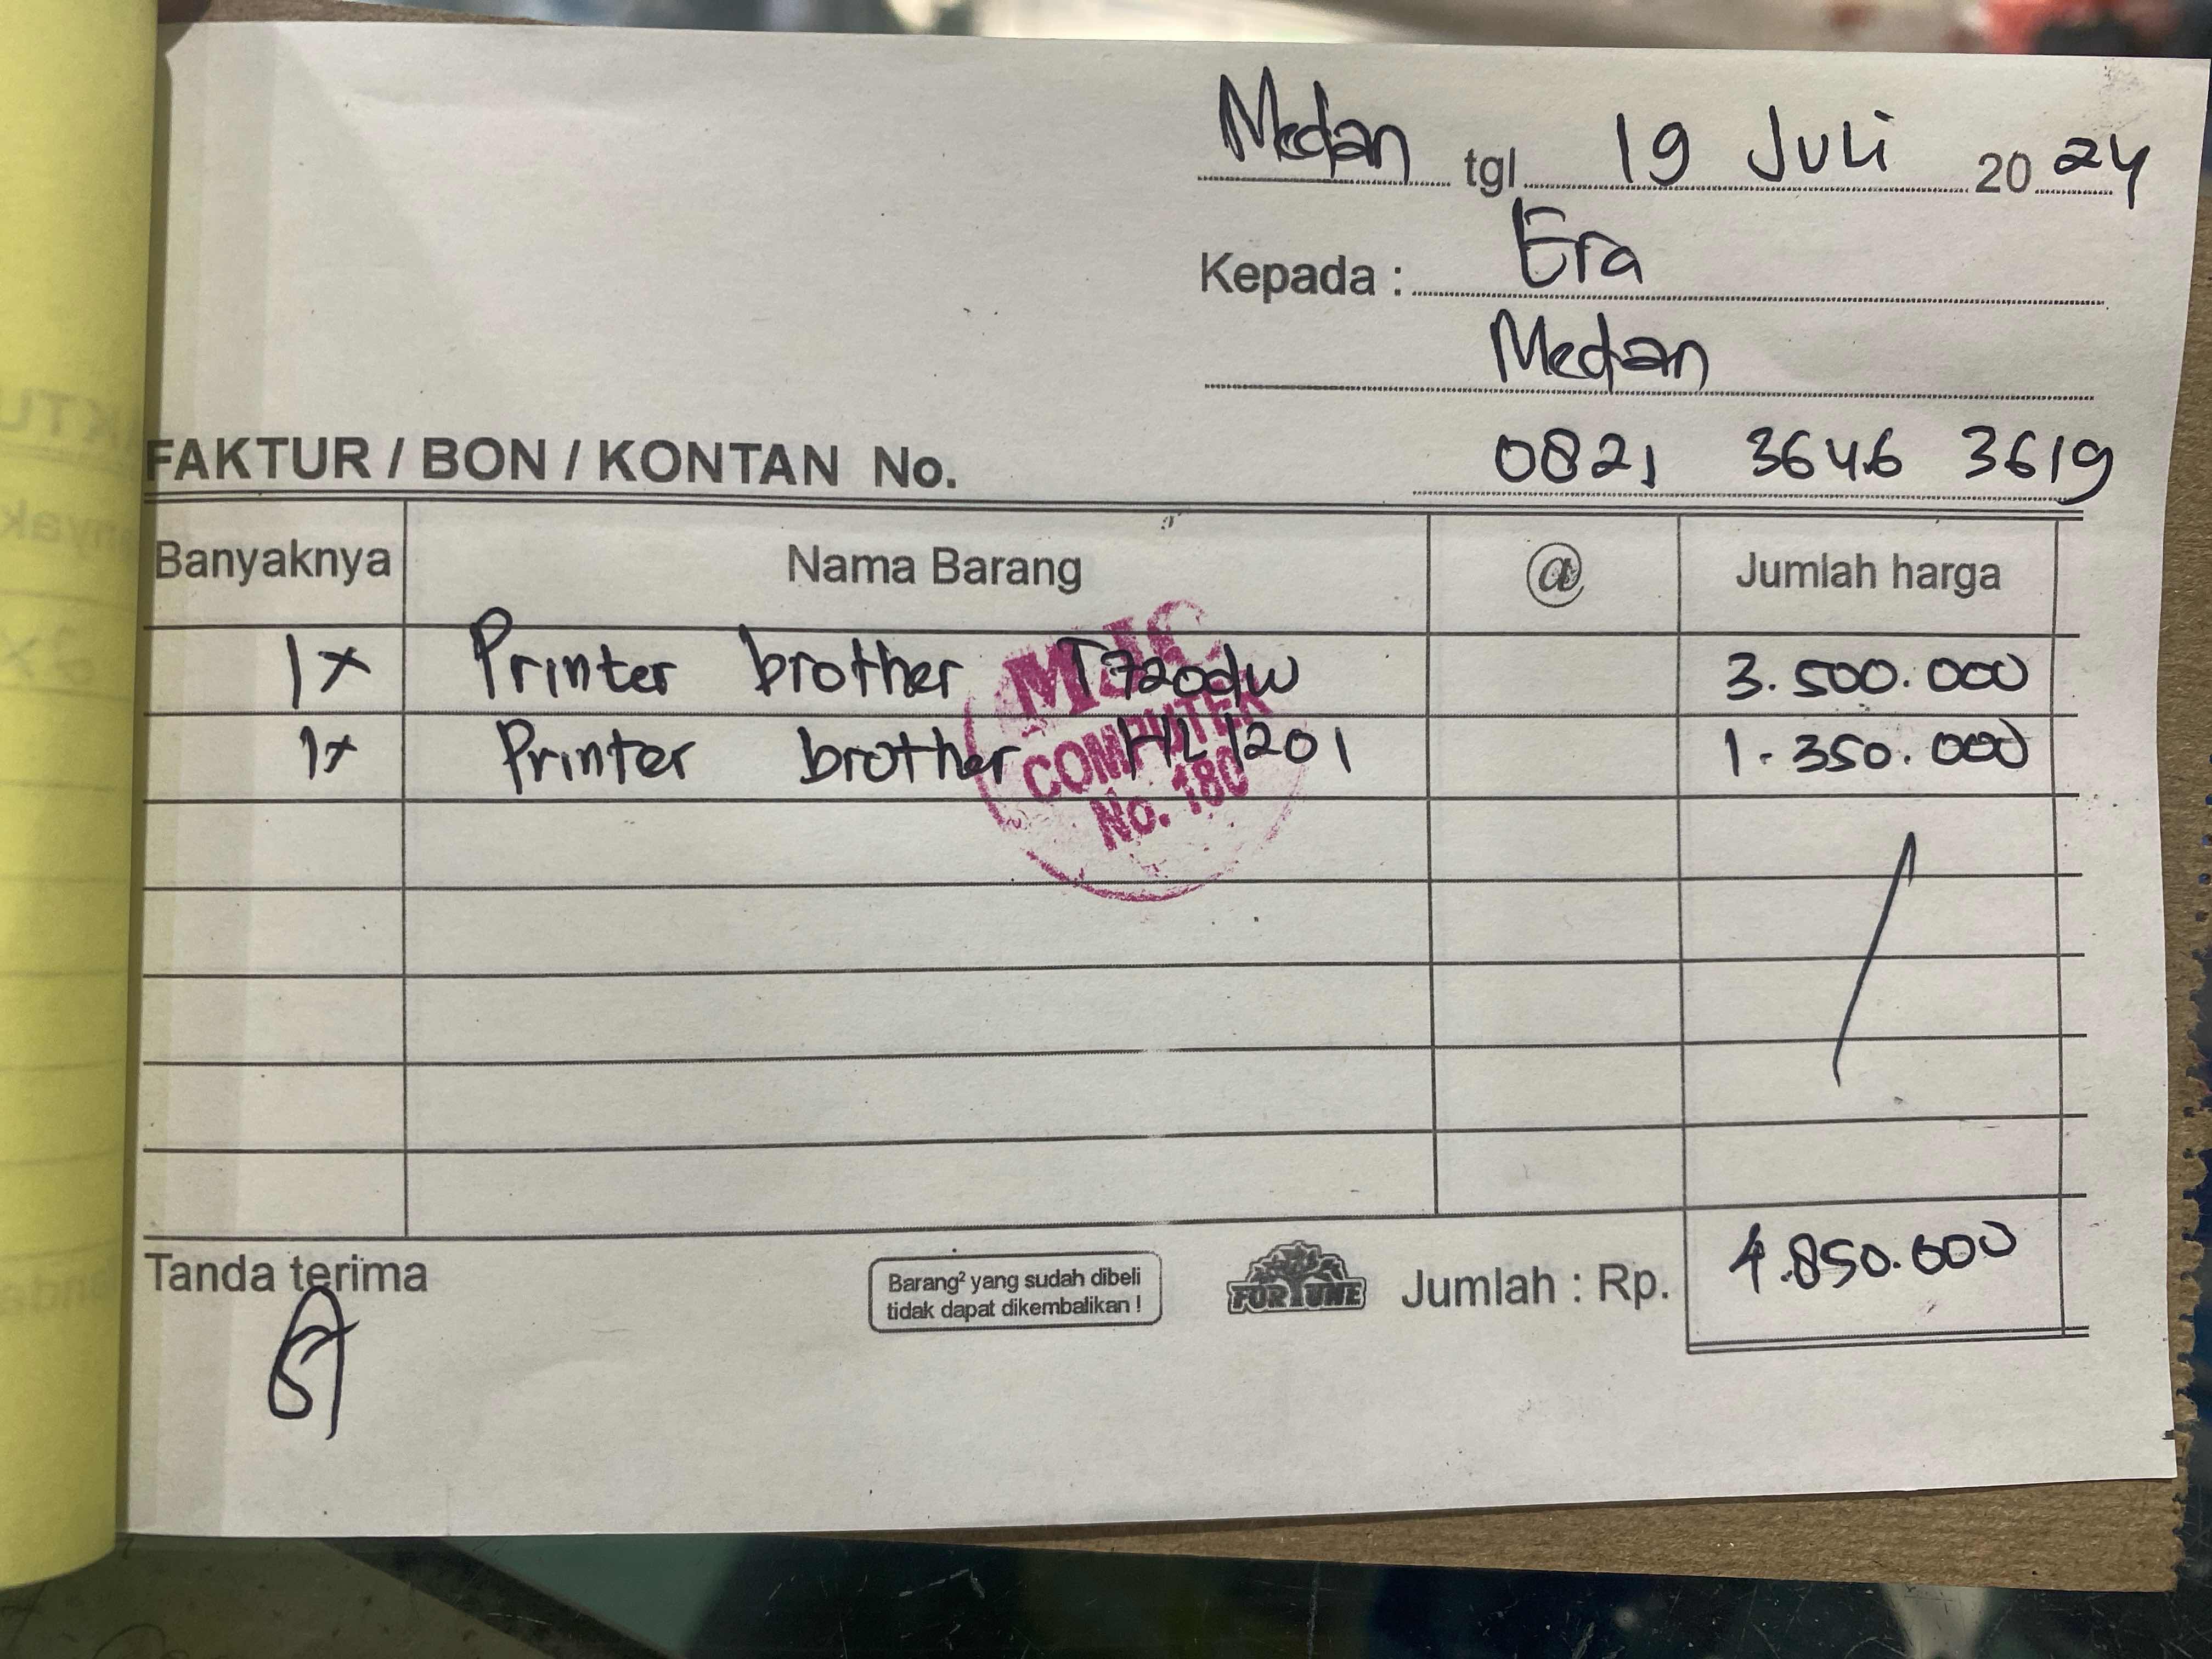 Medan tgl 19 Juli 2024
Kepada : Era
Medan
FAKTUR / BON / KONTAN No. 0821 3646 3619
Banyaknya Nama Barang @ Jumlah harga
1x Printer brother T720dw 3.500.000
1x Printer brother HL 1201 1.350.000
MJC
COMPUTER
No. 180
Tanda terima
Barang² yang sudah dibeli
tidak dapat dikembalikan !
FORTUNE
Jumlah : Rp. 4.850.000